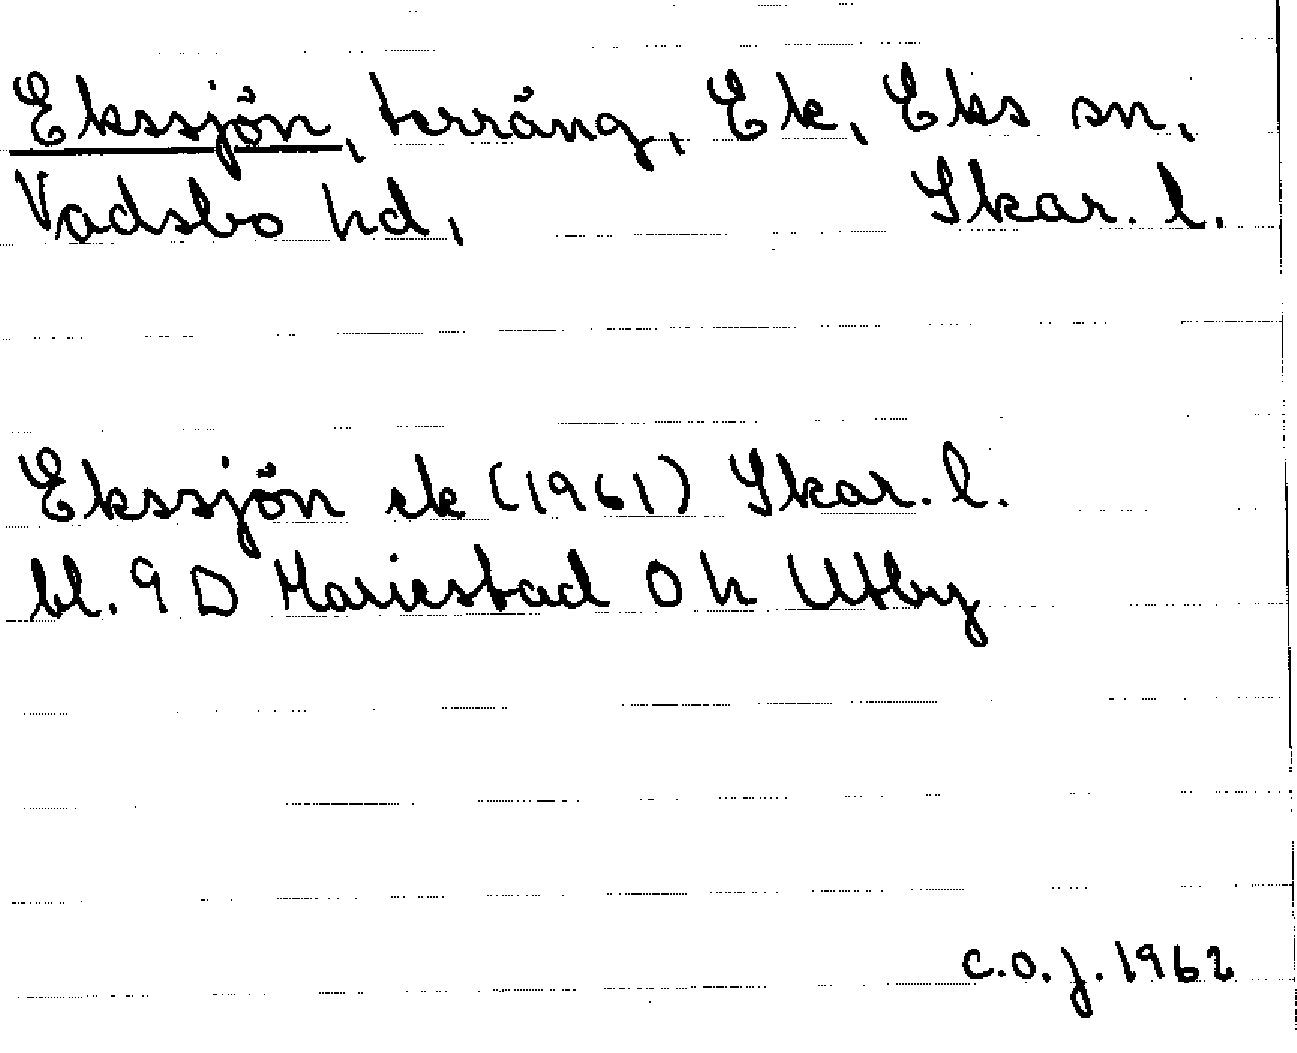 Ekssjön, terräng, Ek, Eks sn,
Vadsbo hd, Skar. l.
Ekssjön ek (1961) Skar. l.
bl. 9 D Mariestad 0 h Utby
C.O.J. 1962